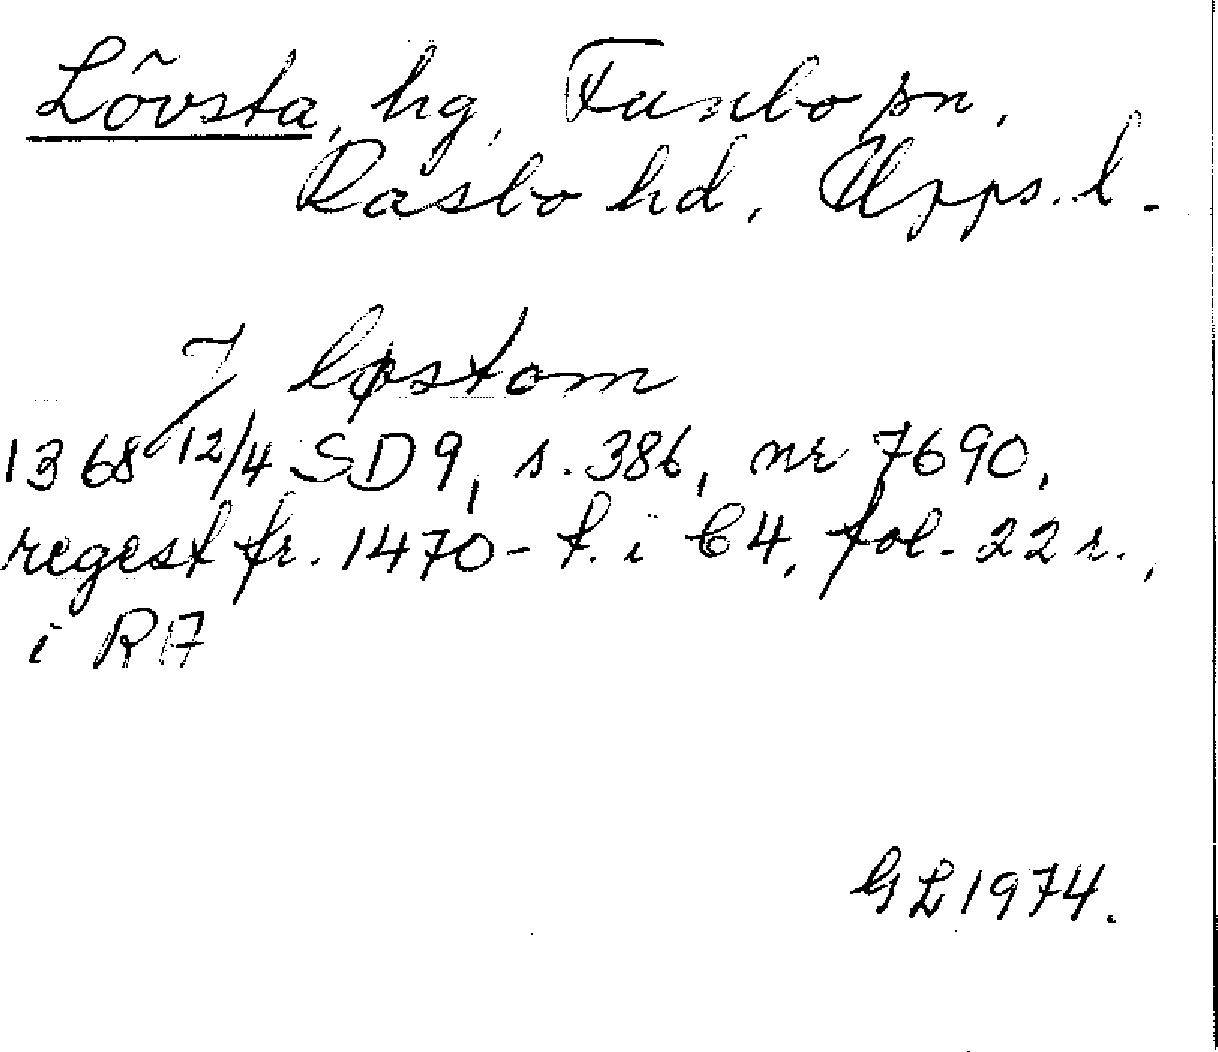 Lövsta, hg, Funbo sn,
Rasbo hd, Upps. l.
J løstom
1368 12/4 SD 9, s. 386, nr 7690,
regest fr. 1470-t. i C 4, fol. 22 r.,
i RA
GL 1974.